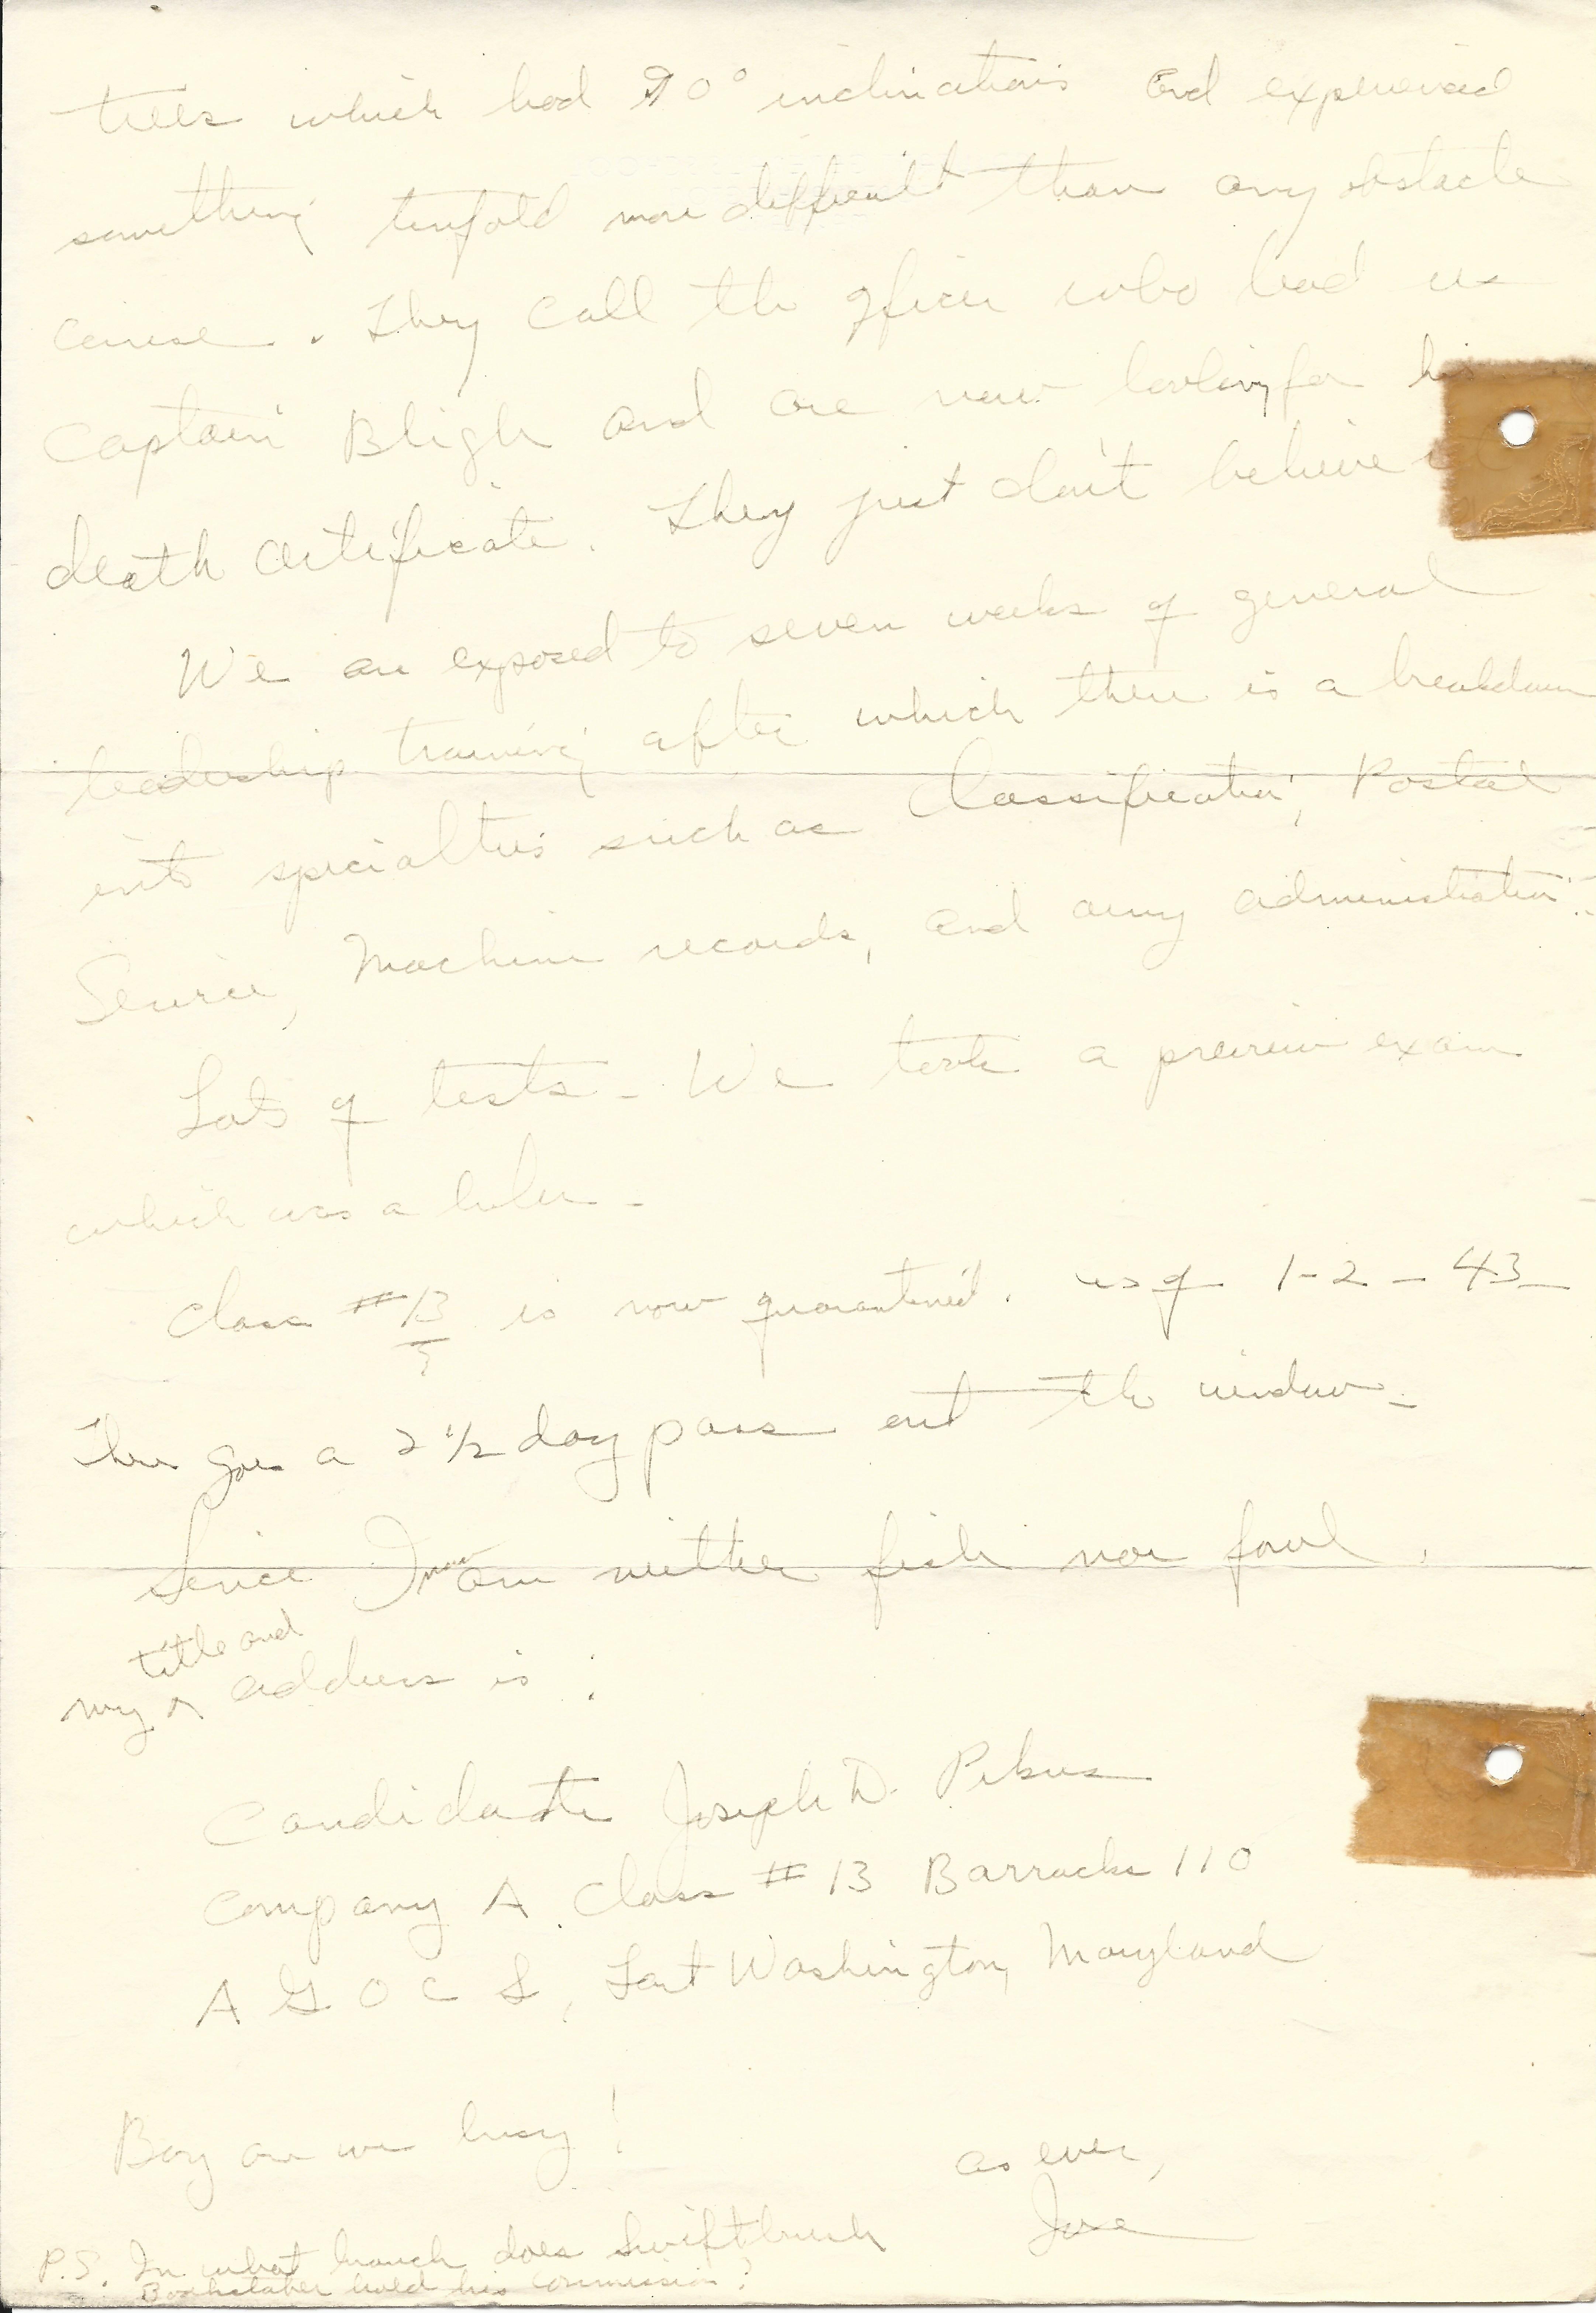 trees which had 90° inclinations and experienced
something tenfold more difficult than any obstacle
course. They call the officer who lead us
Captain Bligh and are now looking for his
death certificate. They just don't believe
We are exposed to seven weeks of general
leadership training after which there is a breakdown
into specialties such as Classification, Postal
Service, Machine records, and army administration.
Lots of tests - We took a preview exam
which was a
Class #13 is now quarantined. as of 1-2-43
There goes a 2 1/2 day pass out the window -
Since I now am neither fish nor fowl.
my title and address is:
Candidate Joseph D. Pikus
Company A Class #13 Barracks 110
A G O C S, Fort Washington, Maryland
Boy are we busy!
as ever,
P.S. In what branch does Swiftbrush
hold his commission?